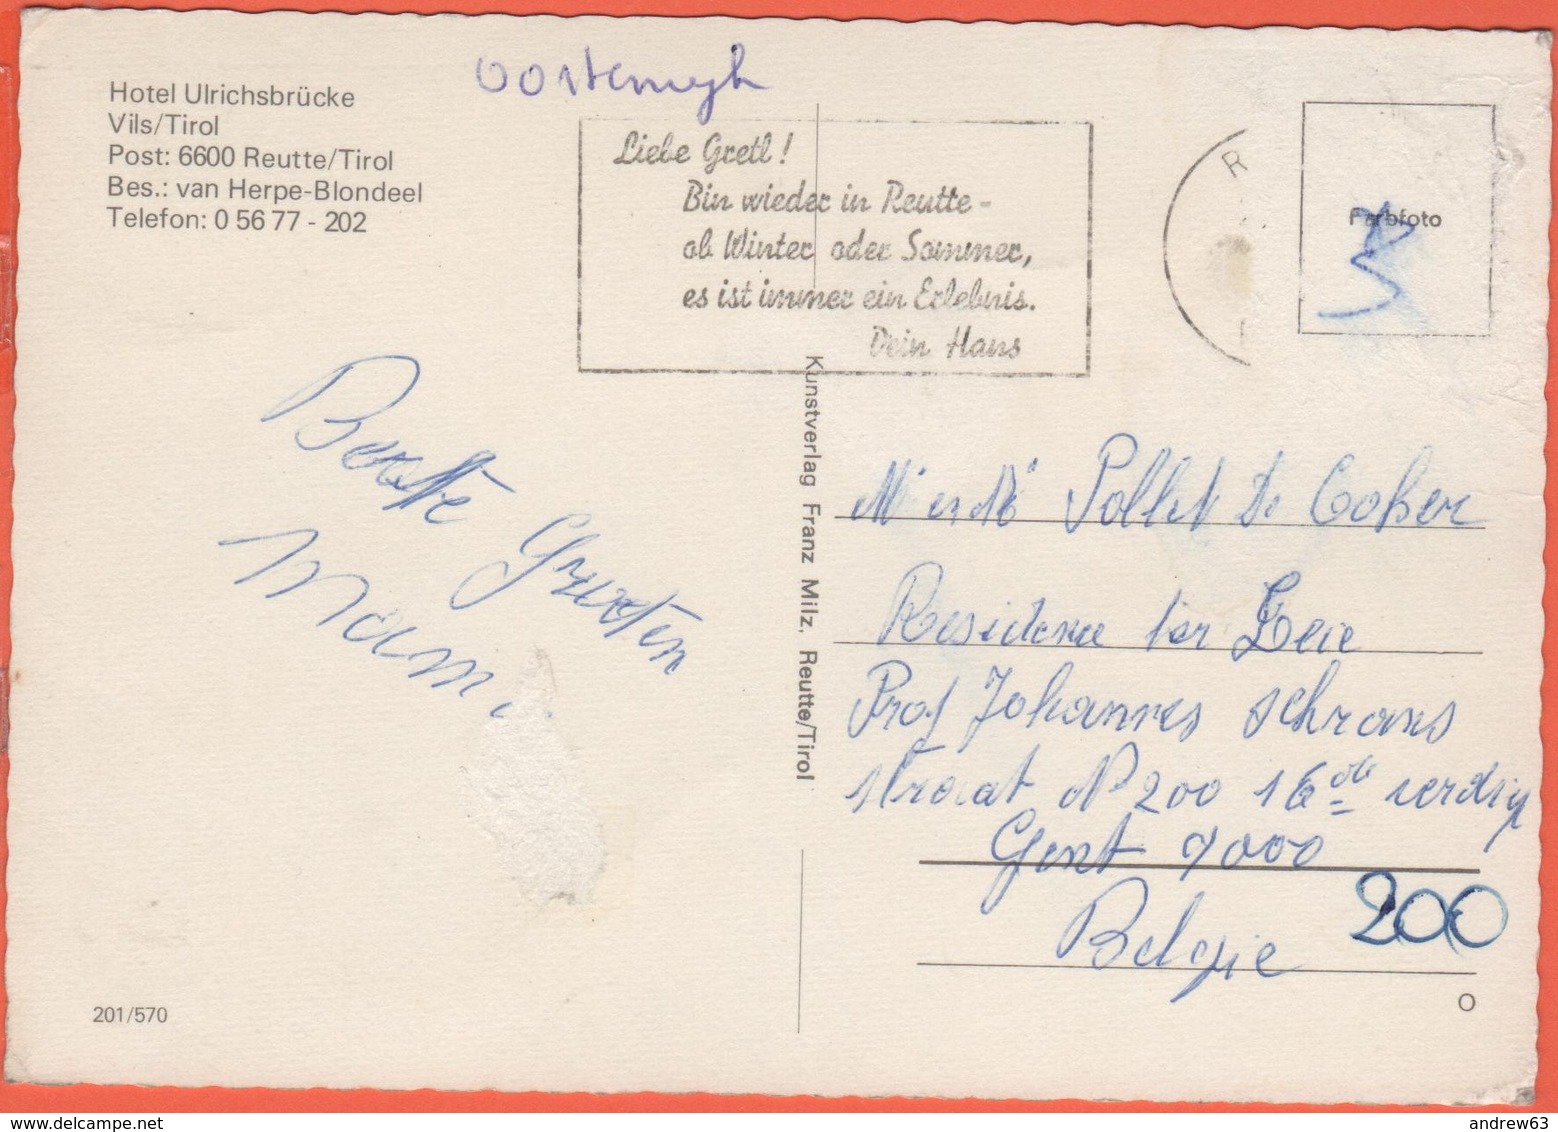 Oostenrijk
Hotel Ulrichsbrücke
Vils/Tirol
Post: 6600 Reutte/Tirol
Bes.: van Herpe-Blondeel
Telefon: 0 56 77 - 202
Liebe Gretl!
Bin wieder in Reutte -
ob Winter oder Sommer,
es ist immer ein Erlebnis.
Dein Hans
R
Farbfoto
Beste Groeten
Mam
Kunstverlag Franz Milz, Reutte/Tirol
Mr en Mr Pollet De
Residence ter Leie
Prof Johannes schrans
straat N° 200 16de verdiep
Gent 9000
Belgie
200
201/570
O
andrew63